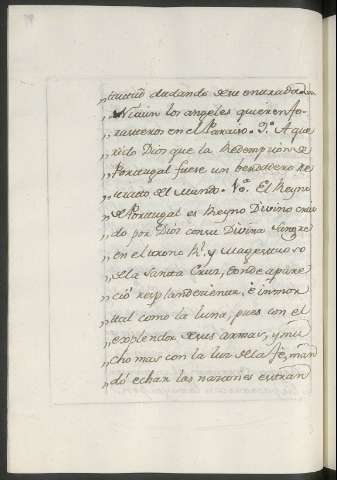 „ dudando de su entrada
„ Ni aun los angeles quieren fo-
„ rasteros en el Paraiso. 9.º A que
„ rido Dios que la Redempcion de
„ Portugal fuese un verdadero Re
„ trato del Mundo. Vº. El Reyno
„ de Portugal es Reyno Divino cria
„ do por Dios con su Divina Sangre
„ en el trono Rl. y Magestuoso
„ de la Santa Cruz, donde apare
„ ció resplandeciente, è inmor
„ tal como la luna, pues con el
„ explendor de sus armas, y mu
„ cho mas con la luz de la fé, man
„ dó echar las naciones estrañ